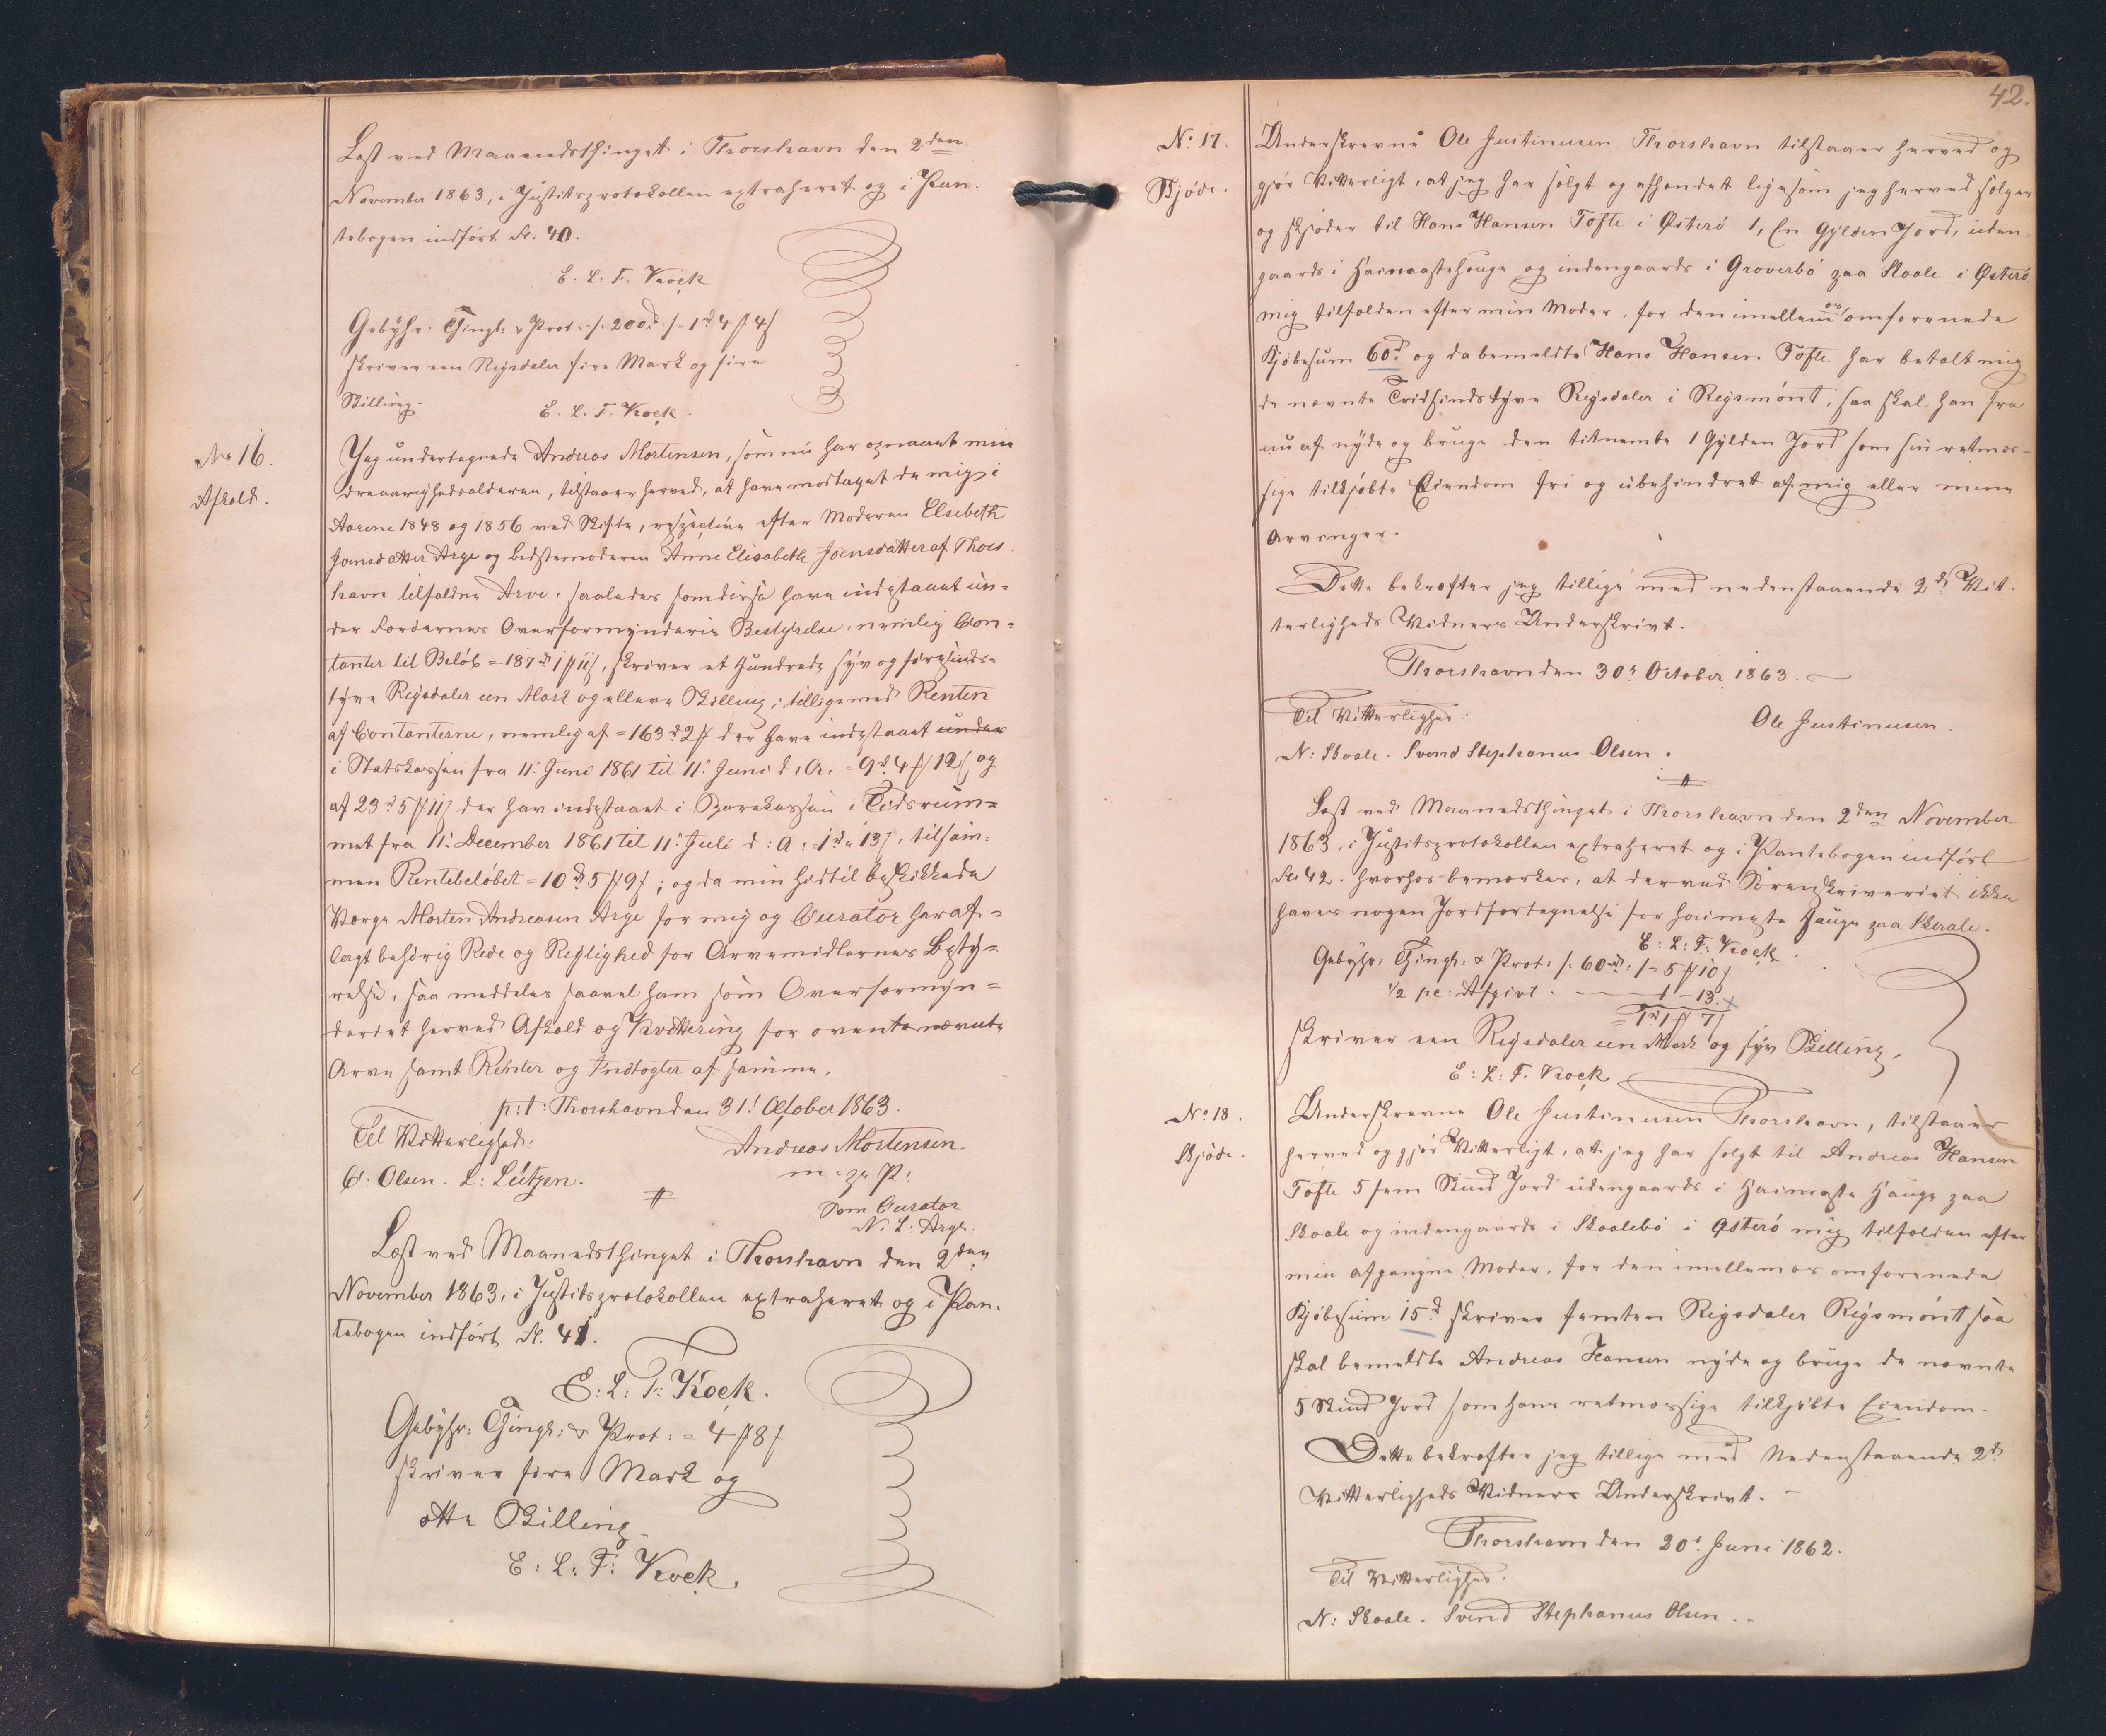 Læst ved Maanedsthinget i Thorshavn den 2den
November 1863, i Justitsprotokollen extraheret og i Pan-
tebogen indført Fl. 40.
E. L. F. Kock
Gebyhr: Thingl: & Prot. /: 200rd :/ = 1rd 4 # 4 ß
skriver een Rigsdaler fire Mark og fire
Skilling.
E. L. F. Kock.
No 16.
Afkald.
Jeg undertegnede Andreas Mortensen, som nu har opnaaet min
dreaarighedsalderen, tilstaaer herved, at have modtaget de mig i
Aarene 1848 og 1856 ved Skifte, respective efter Moderen Elsebeth
Joensdatter Arge og Bedstemoderen Anne Elisabeth Joensdatter af Thors-
havn tilfaldne Arve, saaledes som disse have indestaaet un-
der Færøernes Overformynderies Bestyrelse, nemlig Con-
tanter til Beløb = 187rd 1 # 11 ß, skriver et Hundrede syv og fiirsinds-
tyve Rigsdaler een Mark og elleve Skilling; tilligemed Renten
af Contanterne, nemlig af = 163rd 2 # der have indestaaet under
i Statskassen fra 11: Juni 1861 til 11: Juni d. A. = 9rd 4 # 12 ß, og
af 23rd 5 # 11 ß der har indestaaet i Sparekassen i Tidsrum-
met fra 11: December 1861 til 11: Juli d: A: = 1rd " 13 ß, tilsam-
men Rentebeløbet = 10rd 5 # 9 ß; og da min hidtil beskikkede
Værge Morten Andreasen Arge for mig og Curator har af-
lagt behørig Rede og Rigtighed for Arvemidlernes Besty-
relse, saa meddeles saavel ham som Overformyn-
deriet herved Afkald og Kvittering for ovennævnte
Arve samt Renter og Indtægter af samme.
p: t: Thorshavn den 31: October 1863.
Til Vitterlighed:
Andreas Mortensen
C: Olsen. L: Lützen.
m: p: P:
Som Curator
N. L: Arge.
Læst ved Maanedsthinget i Thorshavn den 2den
November 1863, i Justitsprotokollen extraheret og i Pan-
tebogen indført Fl. 41.
E: L: F: Kock.
Gebyhr: Thingl: & Prot: = 4 # 8 ß
skriver fire Mark og
otte Skilling
E: L: F: Kock.
42.
No 17.
Skjøde.
Underskrevne Ole Justinusen Thorshavn tilstaaer herved og
gjør Vitterligt, at jeg har solgt og afhændet ligesom jeg herved sælger
og skjøder til Hans Hansen Tofte i Østerø 1, En Gylden Jord, uden-
gaards i Haimastehouge og indengaards i Groverbø paa Skaale i Østerø
mig tilfalden efter min Moder, for den imellem os omforenede
Kjøbesum 60rd og da bemeldte Hans Hansen Tofte har betalt mig
de nævnte Tridsindstyve Rigsdaler i Rigsmønt, saa skal han fra
nu af nyde og bruge den titnæmte 1 Gylden Jord som sin retmæs-
sige tilkjøbte Eiendom fri og ubehindret af mig eller mine
Arvinger.
Dette bekræfter jeg tillige med nedenstaaende 2de Vit-
terligheds Vidners Underskrivt.
Thorshavn den 30: October 1863.
Til Vitterlighed:
Ole Justinusen.
N: Skaale. Svend Stephanus Olsen.
Læst ved Maanedsthinget i Thorshavn den 2den November
1863, i Justitsprotokollen extraheret og i Pantebogen indført
Fl. 42. hvorhos bemærkes, at der ved Sorenskriveriet ikke
haves nogen Jordfortegnelse for Haimeste Hauge paa Skaale.
E: L: F: Kock.
Gebyhr: Thingl: & Prot: /: 60rd :/ = 5 # 10 ß
1/2 pc: Afgivt. — 1 – 13.
= 1rd 1 # 7 ß
skriver een Rigsdaler een Mark og syv Skilling.
E: L: F. Kock.
No 18.
Skjøde.
Underskrevne Ole Justinusen Thorshavn, tilstaaer
herved og gjør Vitterligt, at jeg har solgt til Andreas Hansen
Tofte 5 fem Skind Jord udengaards i Haimaste Hauge paa
Skaale og indengaards i Skaalebø i Østerø mig tilfalden efter
min afgangne Moder, for den imellem os omforenede
Kjøbesum 15rd skriver femten Rigsdaler Rigsmønt saa
skal bemeldte Andreas Hansen nyde og bruge de nævnte
5 Skind Jord som hans retmæssige tilkjøbte Eiendom.
Dette bekræfter jeg tillige med Nedenstaaende 2de
Vitterligheds Vidners Underskrivt.
Thorshavn den 20: Juni 1862.
Til Vitterlighed.
N: Skaale. Svend Stephanus Olsen.